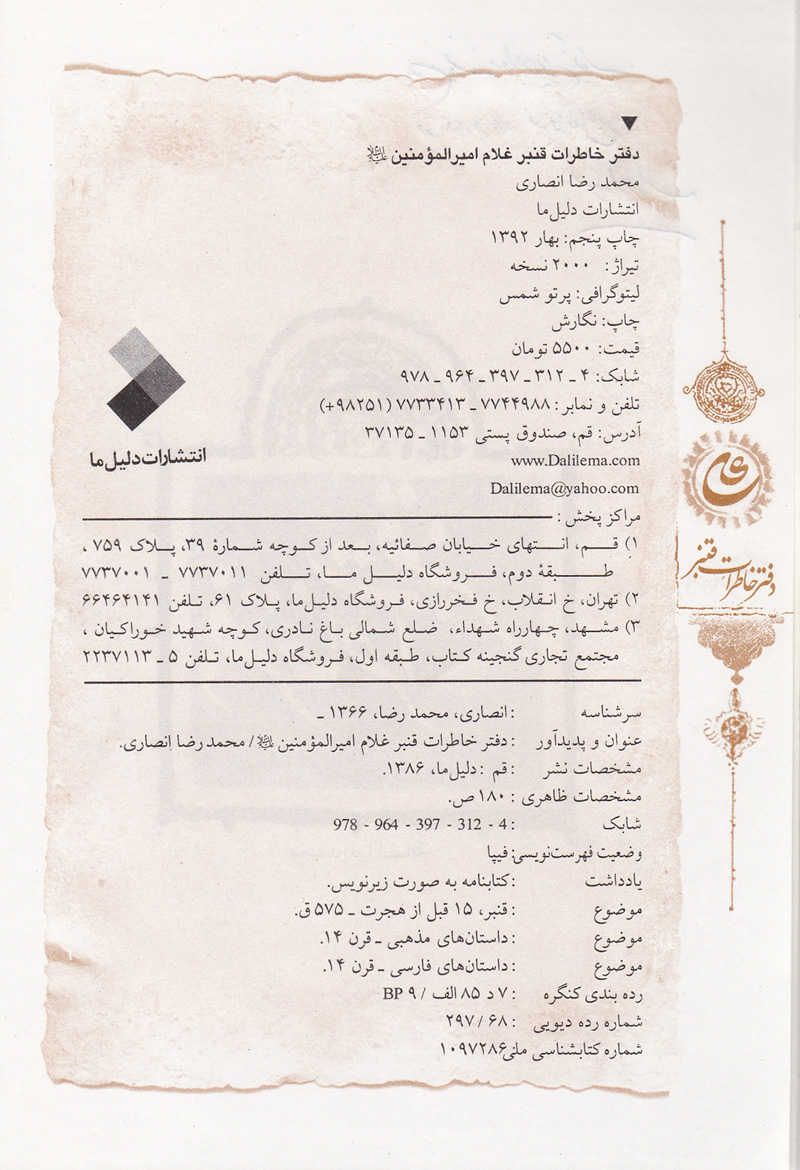 ▼
دفتر خاطرات قنبر غلام امیرالمؤمنین علیه‌السلام
محمد رضا انصاری
انتشارات دلیل‌ما
چاپ پنجم: بهار ۱۳۹۲
تیراژ: ۲۰۰۰ نسخه
لیتوگرافی: پرتو شمس
چاپ: نگارش
قیمت: ۵۵۰۰ تومان
شابک: ۴ ـ ۳۱۲ ـ ۳۹۷ ـ ۹۶۴ ـ ۹۷۸
تلفن و نمابر: ۷۷۴۴۹۸۸ ـ ۷۷۳۳۴۱۳ (۹۸۲۵۱+)
آدرس: قم، صندوق پستی ۱۱۵۳ ـ ۳۷۱۳۵
www.Dalilema.com
Dalilema@yahoo.com
انتشارات دلیل ما
مراکز پخش:
۱) قم، انتهای خیابان صفائیه، بعد از کوچه شمارهٔ ۳۹، پلاک ۷۵۹،
طبقهٔ دوم، فروشگاه دلیل ما، تلفن ۷۷۳۷۰۱۱ ـ ۷۷۳۷۰۰۱
۲) تهران، خ انقلاب، خ فخررازی، فروشگاه دلیل‌ما، پلاک ۶۱، تلفن ۶۶۴۶۴۱۴۱
۳) مشهد، چهارراه شهداء، ضلع شمالی باغ نادری، کوچه شهید خوراکیان،
مجتمع تجاری گنجینه کتاب، طبقه اول، فروشگاه دلیل‌ما، تلفن ۵ ـ ۲۲۳۷۱۱۳
سرشناسه : انصاری، محمد رضا، ۱۳۶۶ ـ
عنوان و پدیدآور : دفتر خاطرات قنبر غلام امیرالمؤمنین علیه‌السلام / محمد رضا انصاری.
مشخصات نشر : قم : دلیل‌ما، ۱۳۸۶.
مشخصات ظاهری : ۱۸۰ ص.
شابک : 978 - 964 - 397 - 312 - 4
وضعیت فهرست‌نویسی: فیپا
یادداشت : کتابنامه به صورت زیرنویس.
موضوع : قنبر، ۱۵ قبل از هجرت ـ ۵۷۵ ق.
موضوع : داستان‌های مذهبی ـ قرن ۱۴.
موضوع : داستان‌های فارسی ـ قرن ۱۴.
رده بندی کنگره : ۷ د ۸۵ الف / ۹ BP
شماره رده دیویی : ۲۹۷/۶۸
شماره کتابشناسی ملی ۱۰۹۷۲۸۶
علی
دفتر خاطرات قنبر